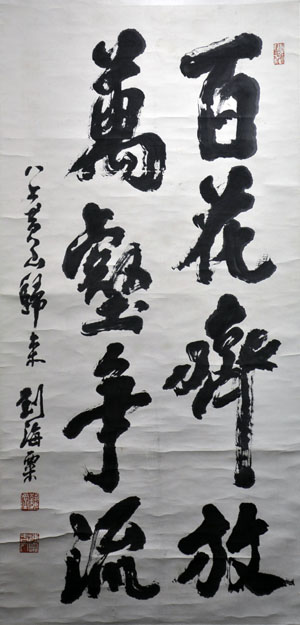 百花齊放
萬壑爭流
八上黃山歸來 劉海粟